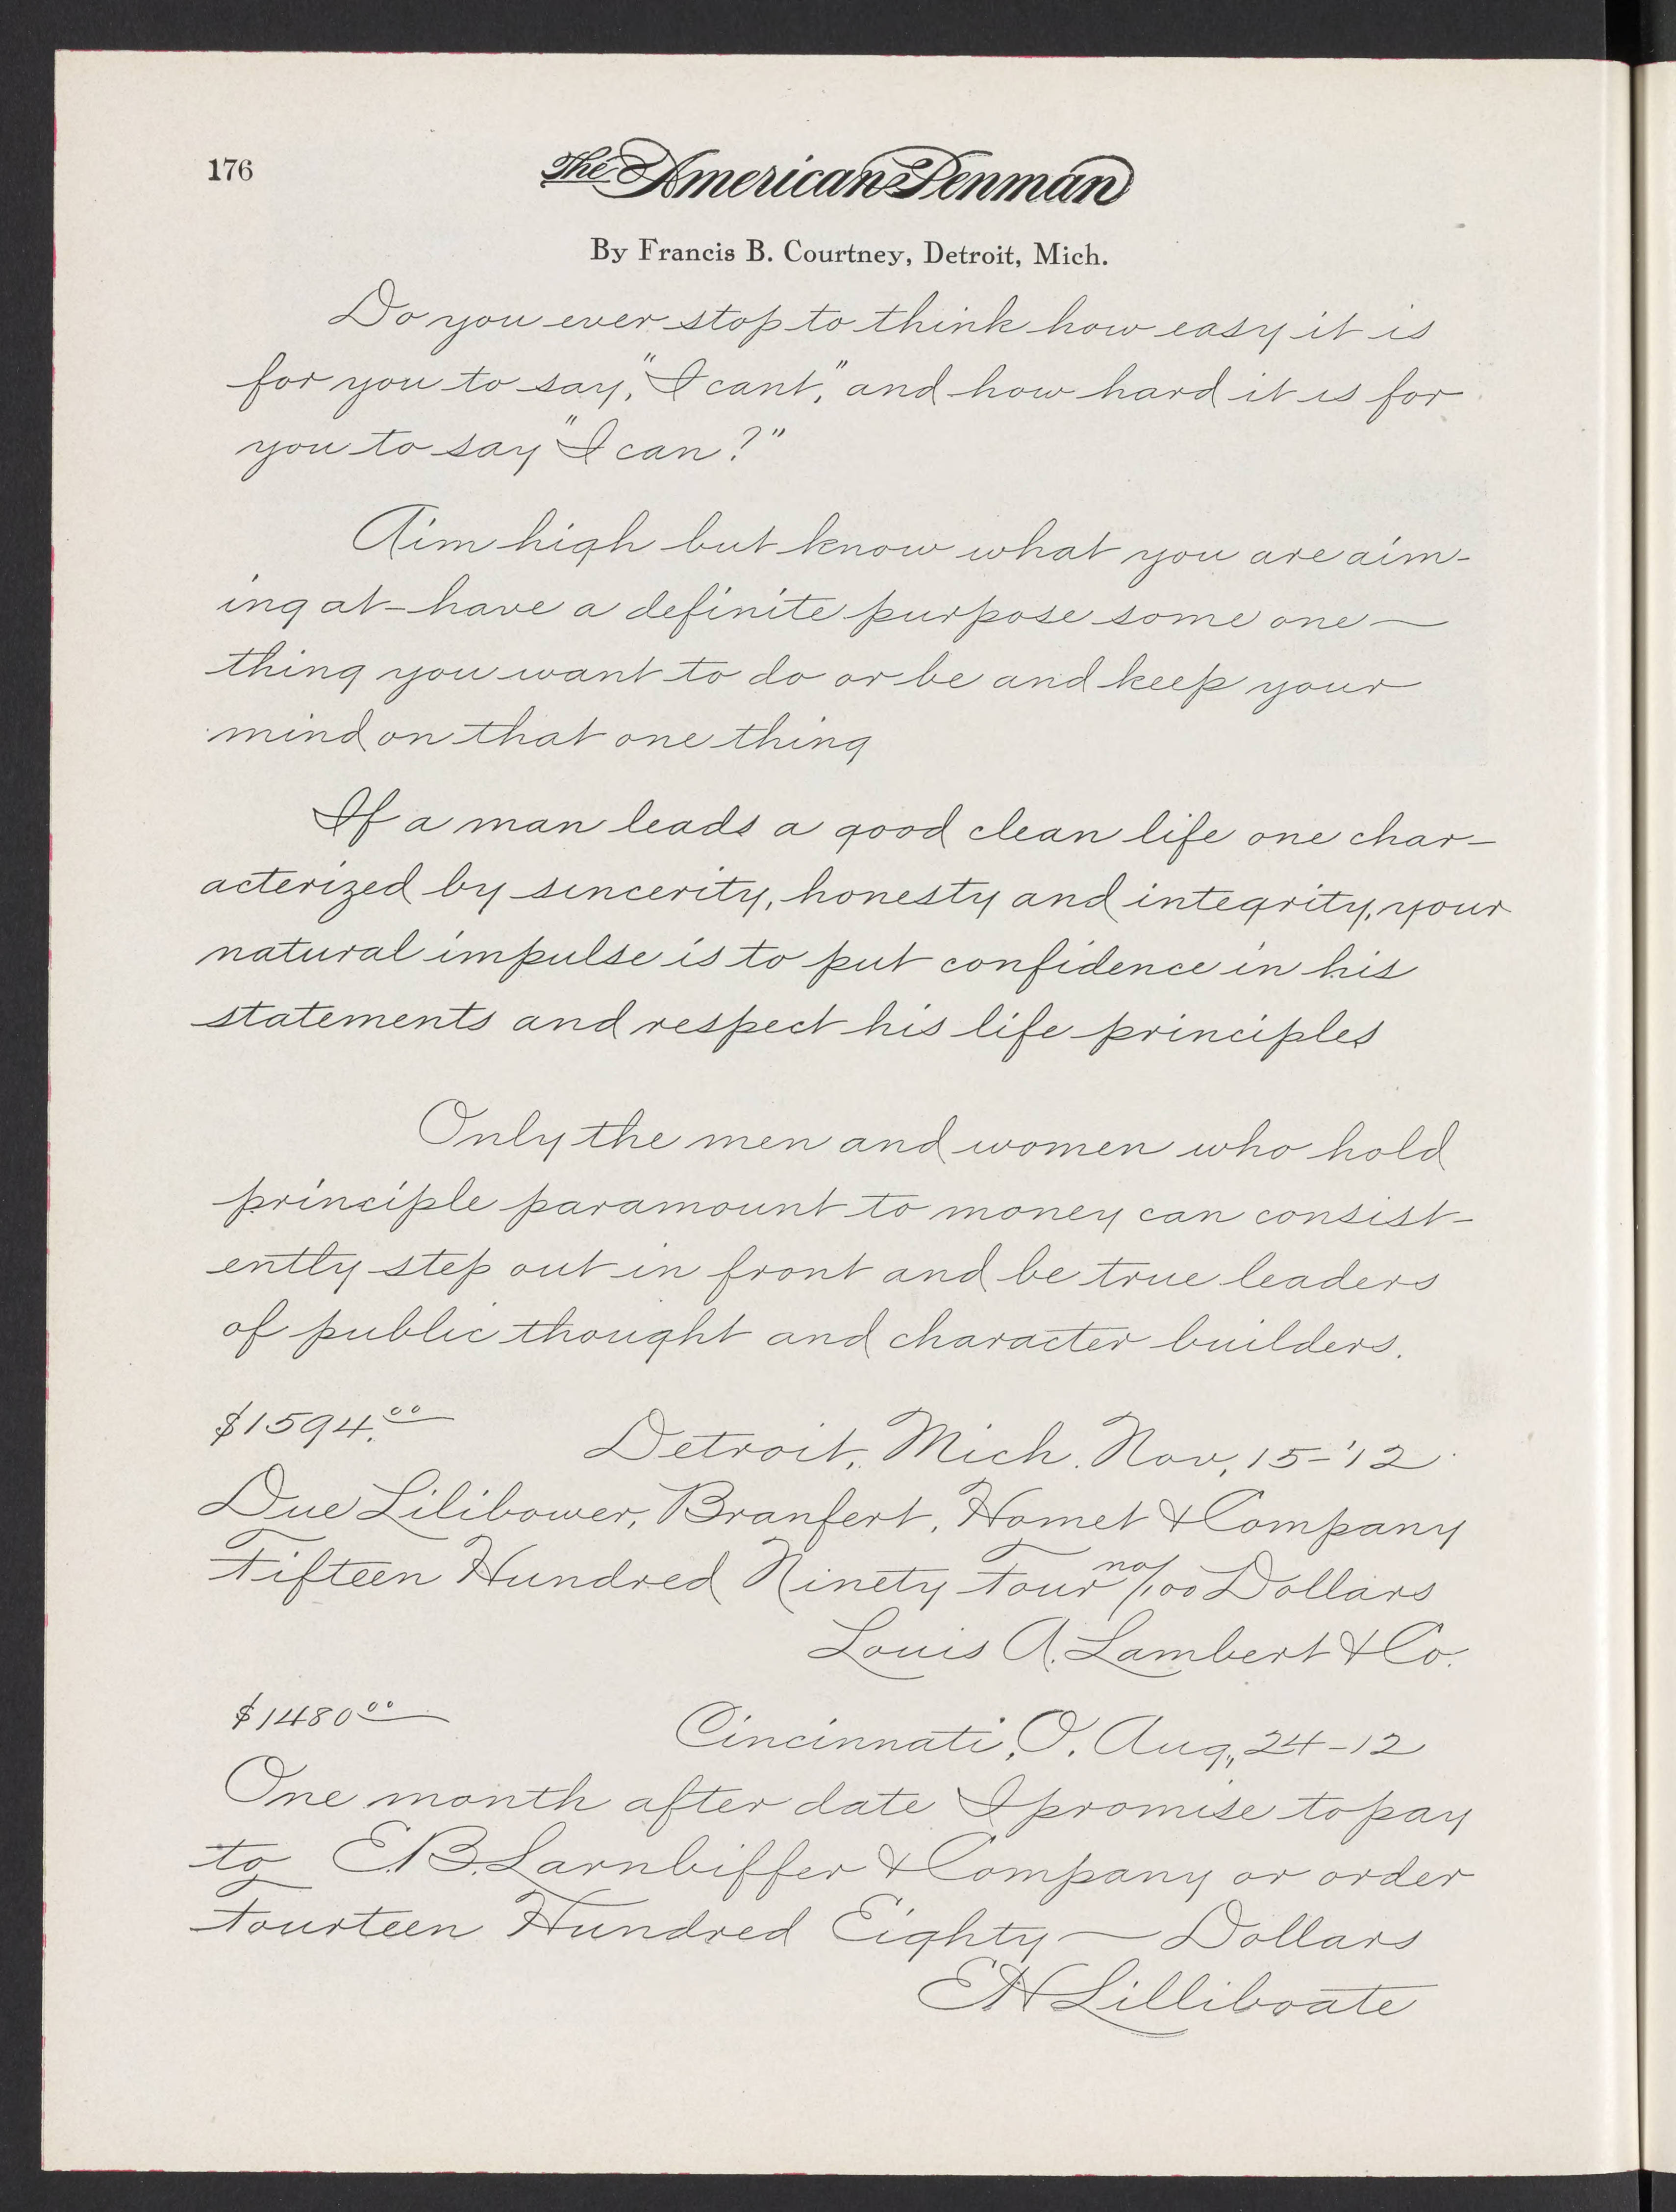 176
The American Penman
By Francis B. Courtney, Detroit, Mich.
Do you ever stop to think how easy it is
for you to say, "I cant," and how hard it is for
you to say "I can?"
Aim high but know what you are aim-
ing at - have a definite purpose some one -
thing you want to do or be and keep your
mind on that one thing
If a man leads a good clean life one char-
acterized by sincerity, honesty and integrity, your
natural impulse is to put confidence in his
statements and respect his life principles
Only the men and women who hold
principle paramount to money can consist-
ently step out in front and be true leaders
of public thought and character builders.
$1594.00
Detroit, Mich. Nov, 15-'12
Due Lilibower, Branfert, Homet & Company
Fifteen Hundred Ninety Four no/100 Dollars
Louis A. Lambert & Co.
$1480 00
Cincinnati, O. Aug., 24-12
One month after date I promise to pay
to E.B. Larnbiffer & Company or order
Fourteen Hundred Eighty — Dollars
E H Lilliboate